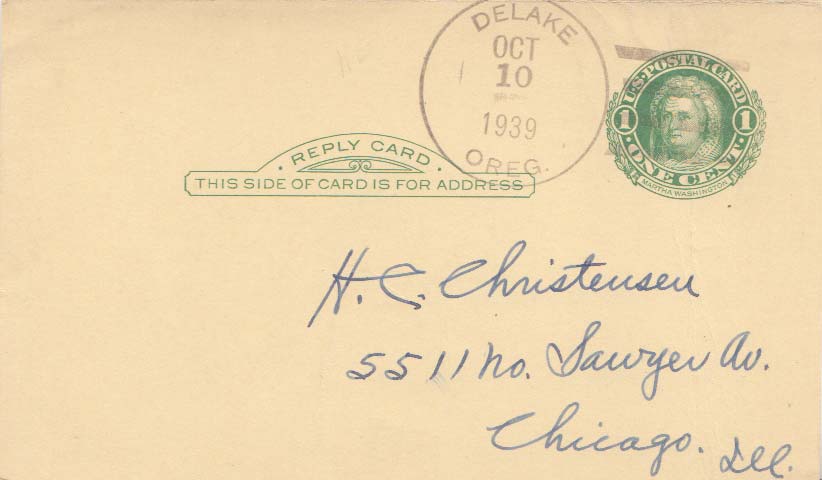 DELAKE
OCT
10
1939
OREG.
U.S. POSTAL CARD
1 1
ONE CENT
MARTHA WASHINGTON
· REPLY CARD ·
THIS SIDE OF CARD IS FOR ADDRESS
H. C. Christensen
5511 No. Sawyer Av.
Chicago. Ill.